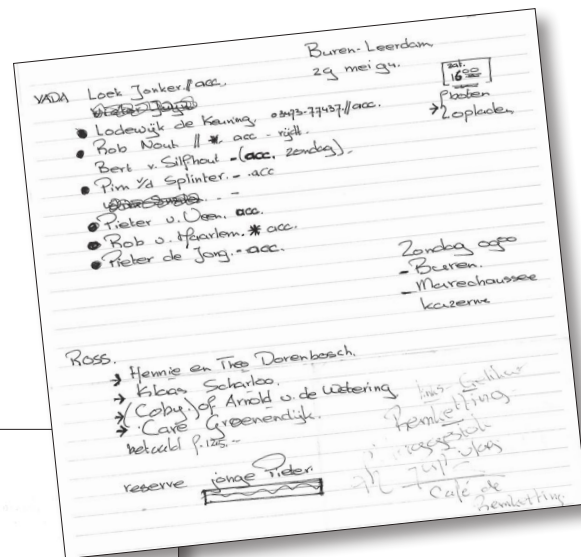 Buren-Leerdam
29 mei 94.
zat.
16 00
boten
→ opladen
VADA Loek Jonker // acc.
• Lodewijk de Keuning. 03473-77437 // acc.
• Rob Nout // * acc - rijdt.
Bert v. Silfhout - (acc. zondag).
• Pim v/d Splinter. - acc
• Pieter v. Veen. acc.
• Rob v. Haarlem. * acc.
• Pieter de Jong. - acc.
Zondag 0900
- Buren.
- Marechaussee
kazerne
Ross.
→ Hennie en Theo Dorenbosch.
→ Klaas Scharloo.
→ (Coby) of Arnold v. de Wetering
→ Care Groenendijk.
betaald f. 125,-
reserve jonge Pieter.
Remketting
Café de
Remketting